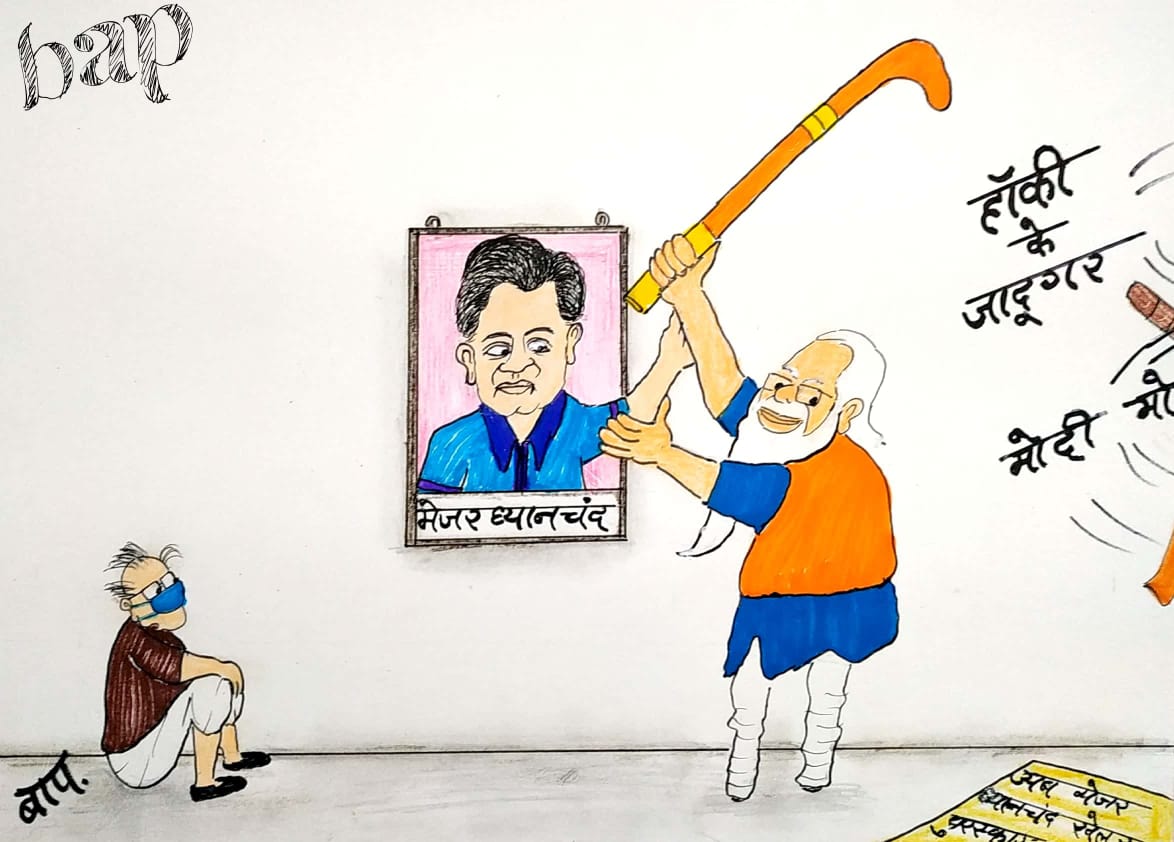 bap
हॉकी
के
जादूगर
मोदी
मेजर ध्यानचंद
बाप.
अब मेजर
ध्यानचंद खेल